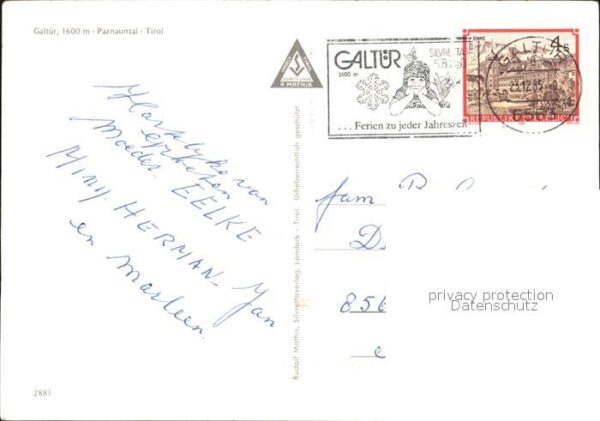 Galtür, 1600 m - Paznauntal - Tirol
Hartelijke
van
Moeder. EELKE
Miny. HERMAN. Jan
en Marleen.
2881
Rudolf Mathis, Silvrettaverlag, Landeck - Tirol. Urheberrechtlich geschützt
R MATHIS
GALTÜR
1600 m
... Ferien zu jeder Jahreszeit
4 S
REPUBLIK ÖSTERREICH
GALTÜR
fam
D
856
e
privacy protection
Datenschutz